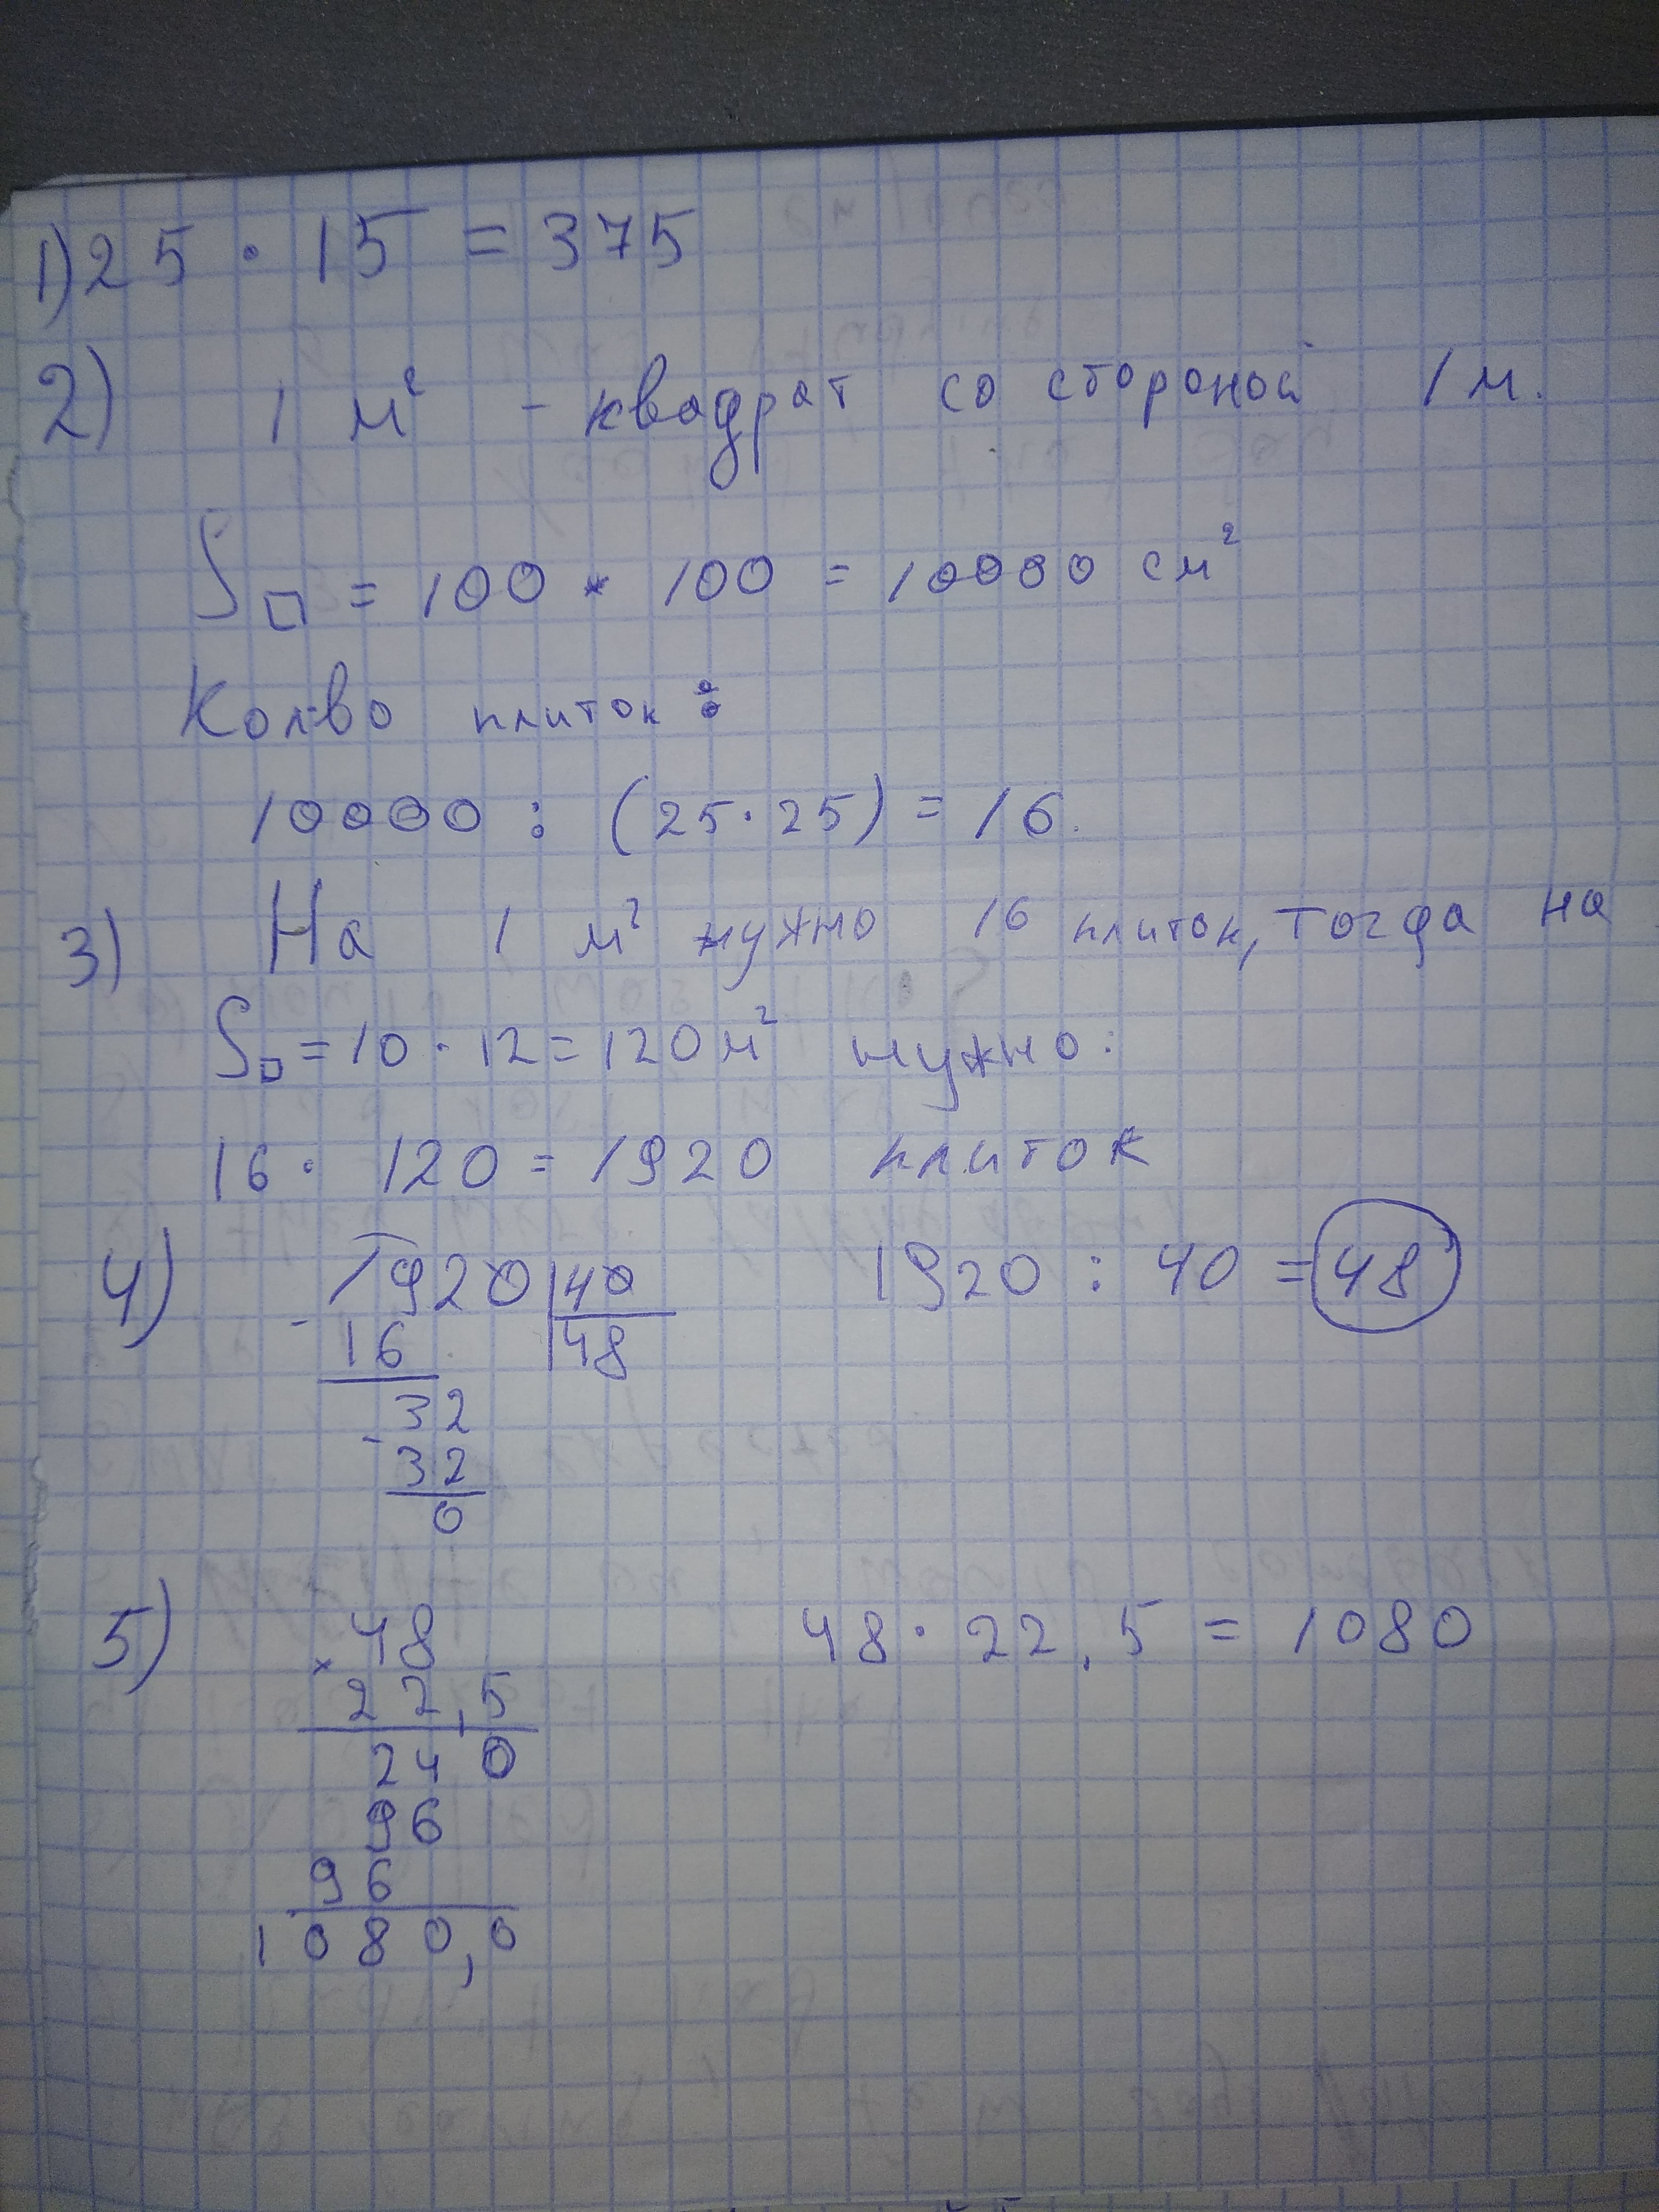 1) 25 · 15 = 375
2) 1 м² - квадрат со стороной 1 м.
S□ = 100 * 100 = 10000 см²
Кол-во плиток :
10000 : (25 · 25) = 16.
3) На 1 м² нужно 16 плиток, тогда на
S□ = 10 · 12 = 120 м² нужно:
16 · 120 = 1920 плиток
4) 1920 | 40 1920 : 40 = 48
- 16 | 48
32
- 32
0
5) 48 48 · 22,5 = 1080
× 22,5
24 0
96
96
1080,0